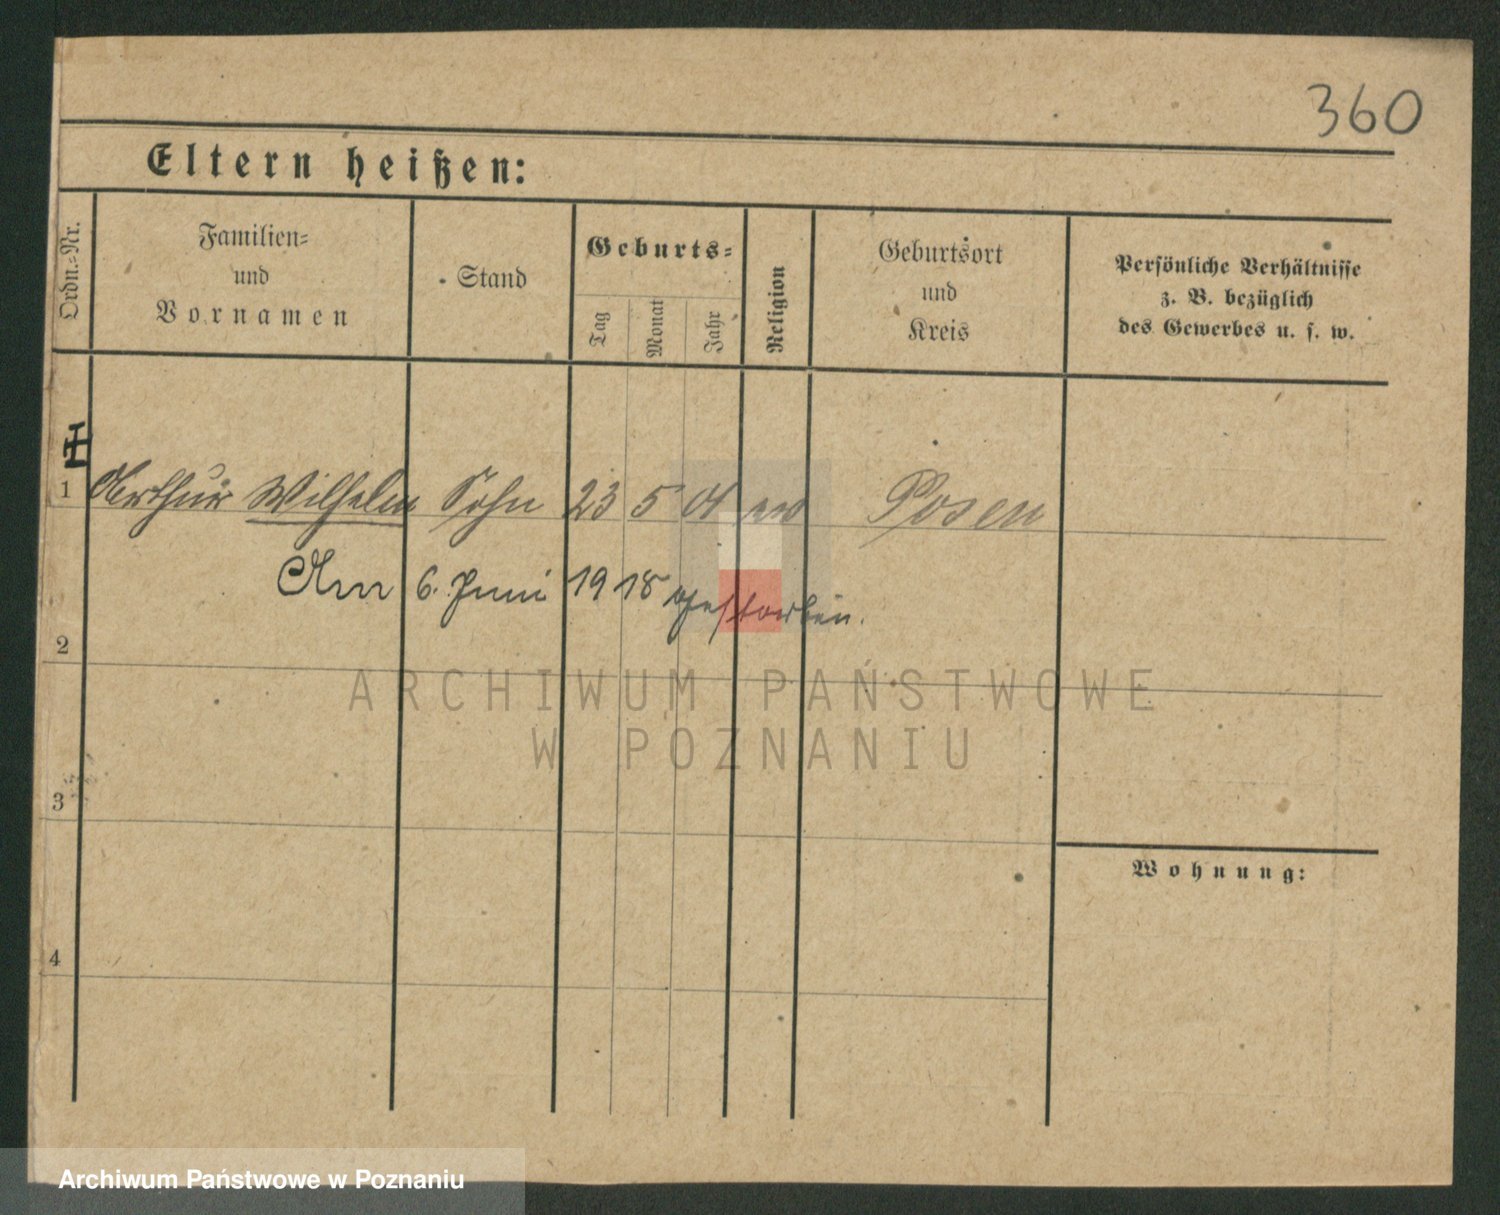 360
Eltern heißen:
Ordn.-Nr.
Familien-
und
Vornamen
Stand
Geburts-
Tag
Monat
Jahr
Religion
Geburtsort
und
Kreis
Persönliche Verhältnisse
z. B. bezüglich
des Gewerbes u. s. w.
1 Arthur Wilhelm Sohn 23 5 01 ev Posen
Am 6. Juni 1918 gestorben.
2
ARCHIWUM PAŃSTWOWE
W POZNANIU
3
Wohnung:
4
Archiwum Państwowe w Poznaniu